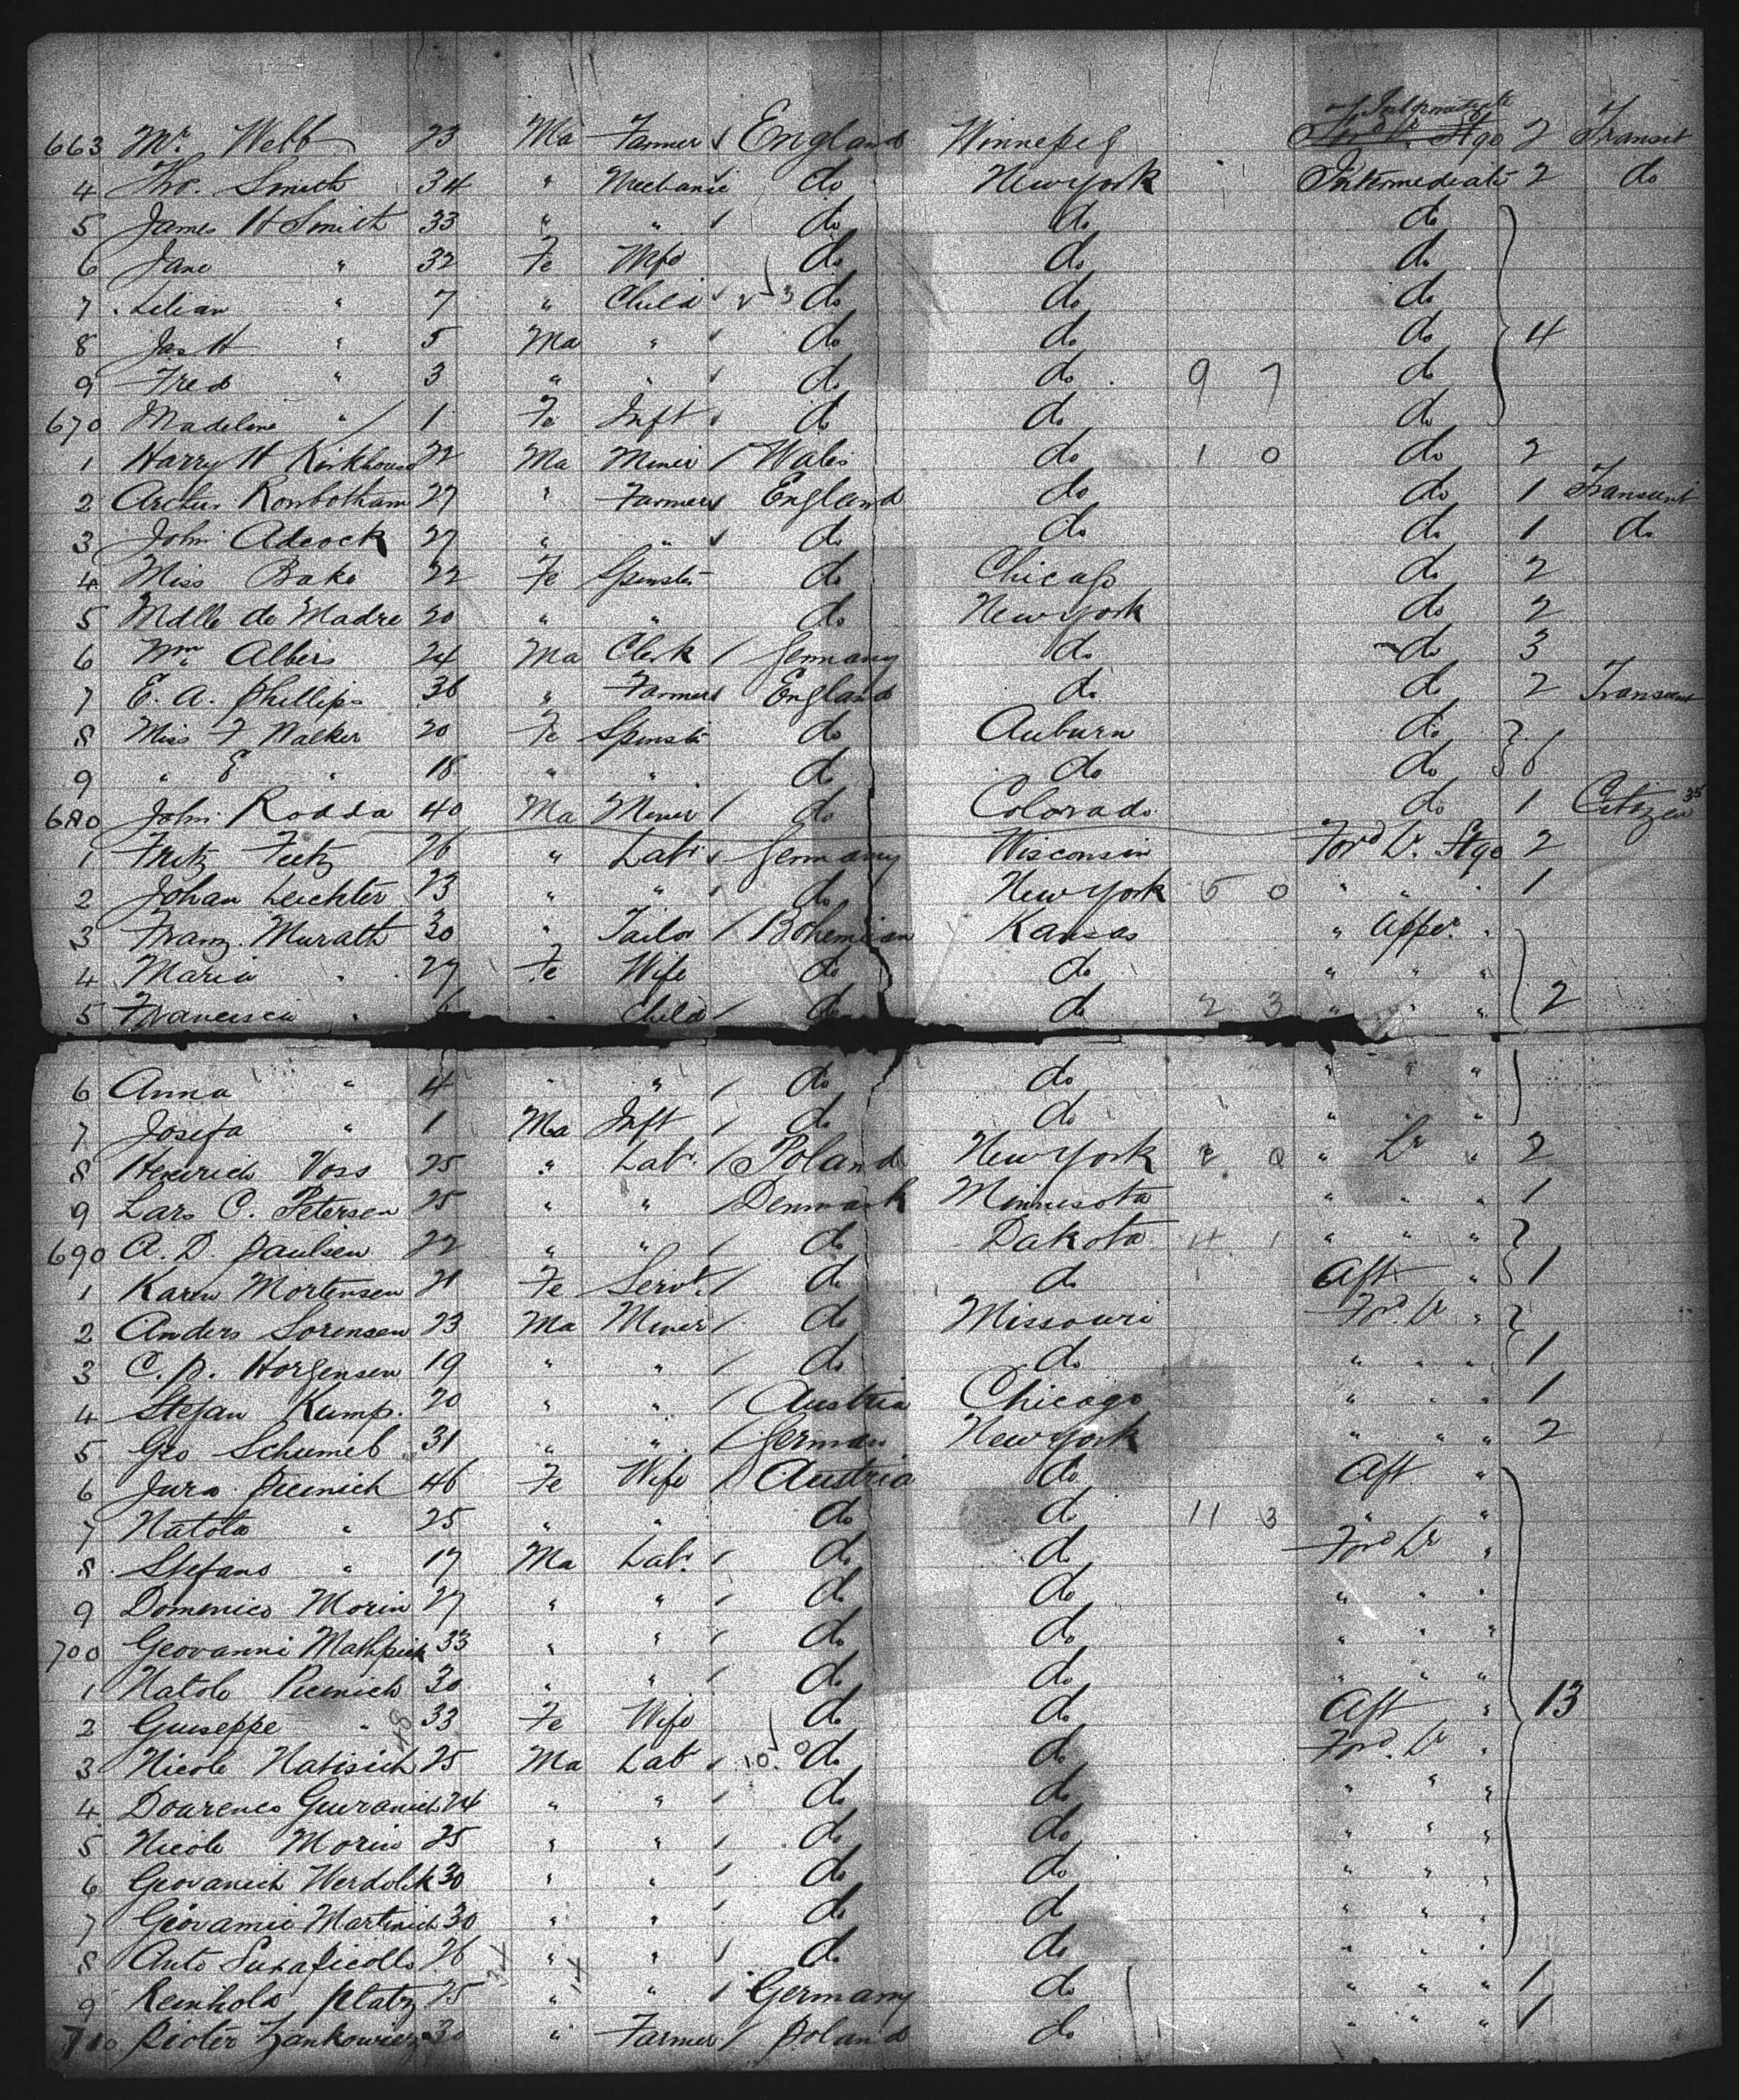 Intermediate
663 Mr. Webb 23 Ma Farmer England Winnipeg Ford Lr. Stge 2 Transit
4 Tho. Smith 34 " Mechanic do New York Intermediate 2 do
5 James H Smith 33 " " do do do
6 Jane " 32 Fe Wife do do do
7 Lilian " 7 " Child do do do
8 Jas H " 5 Ma " do do do 4
9 Fred " 3 " " do do 9 7 do
670 Madeline " 1 Fe Inft do do do
1 Harry H Kirkhouse 22 Ma Miner Wales do 1 0 do 2
2 Arthur Rowbotham 27 " Farmer England do do 1 Transient
3 John Adcock 27 " " do do do 1 do
4 Miss Bake 22 Fe Spinster do Chicago do 2
5 Mdlle de Madre 20 " " do New York do 2
6 Wm Albers 24 Ma Clerk Germany do do 3
7 E. A. Phillips 36 " Farmer England do do 2 Transient
8 Miss F Walker 20 Fe Spinster do Auburn do
9 " E " 18 " " do do do 6
680 John Rodda 40 Ma Miner do Colorado do 1 Citizen 35
1 Fritz 26 " Labr Germany Wisconsin Ford Lr. Stge 2
2 Johan Leichter 23 " " do New York 5 0 " " " 1
3 Franz Murath 30 " Tailor Bohemian Kansas " Upper "
4 Maria " 27 Fe Wife do do " " "
5 Francisca " " Child do do 2 3 " " " 2
6 Anna " 4 " " do do " " "
7 Josefa " 1 Ma Inft do do " " "
8 Heinrich Voss 25 " Labr. Poland New York " Lr " 2
9 Lars C. Petersen 25 " " Denmark Minnesota " " " 1
690 A. D. Paulsen 22 " " do Dakota 4 1 " " "
1 Karen Mortensen 21 Fe Servt. do do Aft " 1
2 Anders Sorensen 23 Ma Miner do Missouri Ford. Lr "
3 C. P. Horgensen 19 " " do do " " " 1
4 Stefan Kump. 20 " " Austria Chicago " " " 1
5 Geo 31 " " German New York " " " 2
6 Jura Picinich 46 Fe Wife Austria do Aft "
7 Natola " 25 " " do do 11 3 " "
8 Stefano " 17 Ma Labr. do do Ford Lr "
9 Domenico Morin 27 " " do do " " "
700 Geovanni 33 " " do do " " "
1 Natolo Picinich 30 " " do do " " "
2 Guiseppe " 33 Fe Wife do do Aft " 13
3 Nicolo 25 Ma Labr 10 0 do do Ford. Lr "
4 24 " " do do " " "
5 Nicolo Morin 25 " " do do " " "
6 Geovanich 30 " " do do " " "
7 Martinich 30 " " do do " " "
8 Anto 26 " " do do " " "
9 Reinhold Platz 25 " " Germany do " " " 1
710 Pioter Zankowicz 30 " Farmer Poland do " " " 1